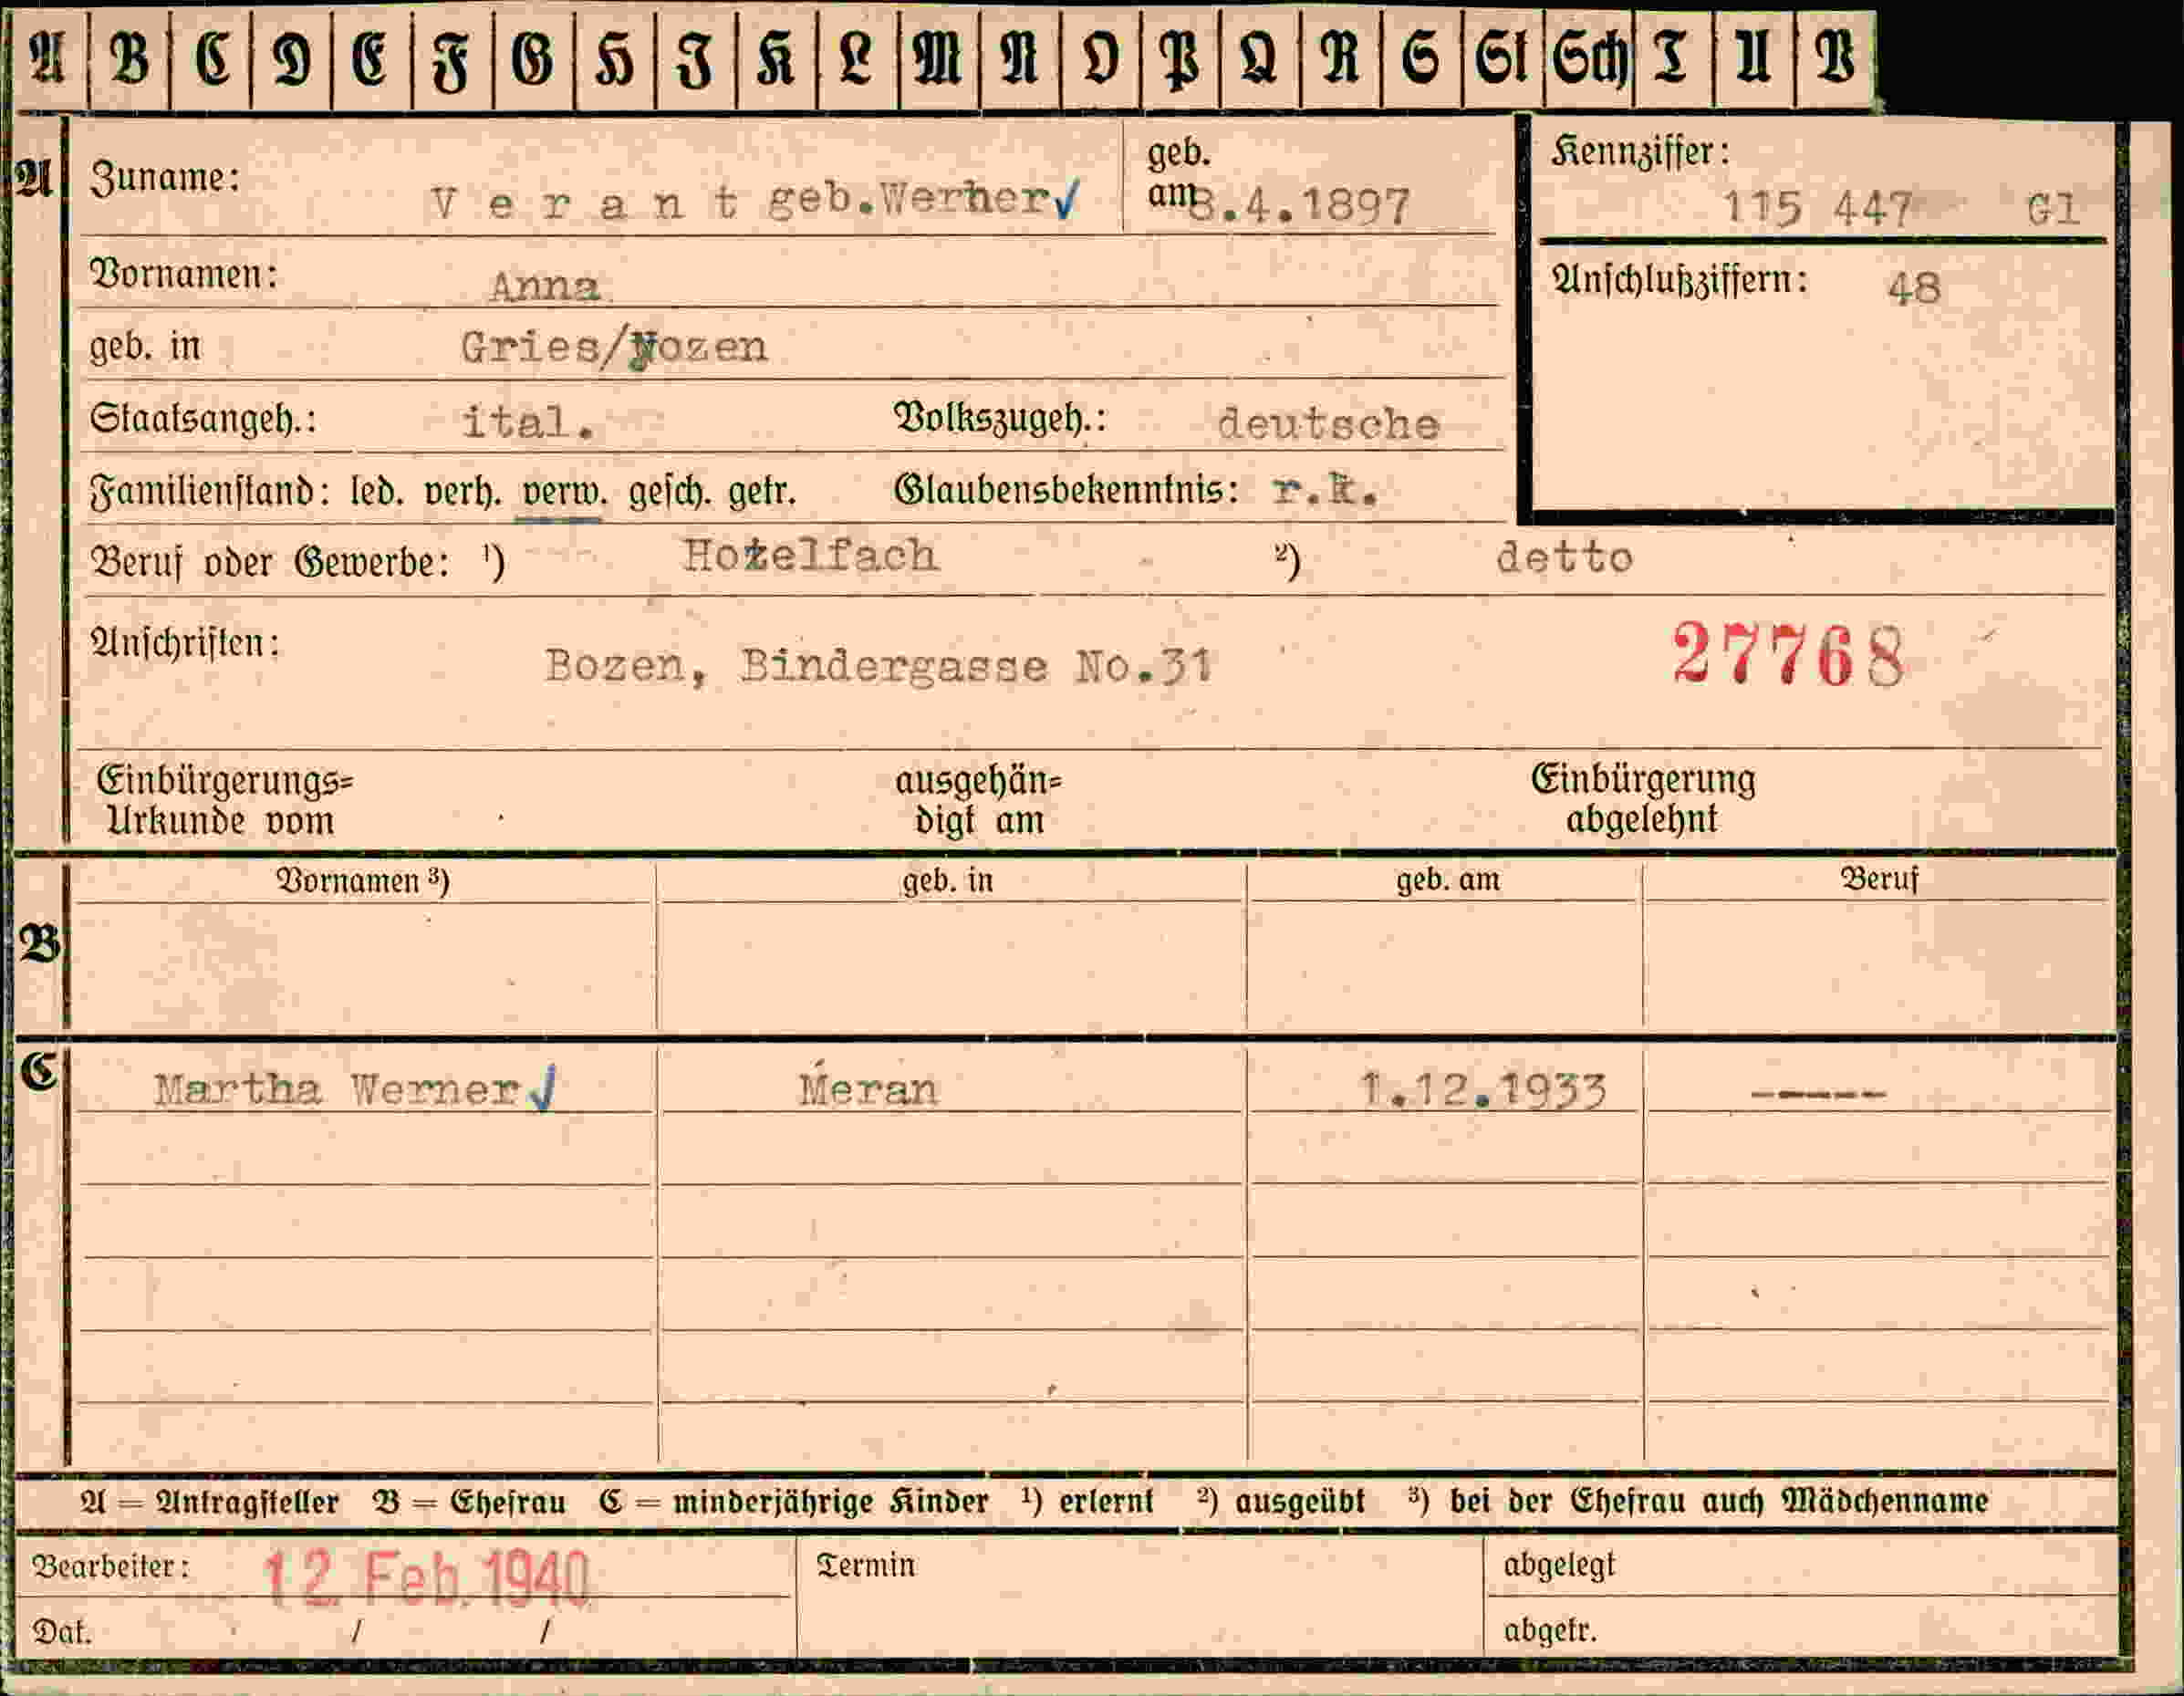 A B C D E F G H I K L M N O P Q R S St Sch T U V
A
Zuname: Verant geb.Werner✓ geb. am 8.4.1897
Kennziffer: 115 447 Gl
Vornamen: Anna
Anschlußziffern: 48
geb. in Gries/Bozen
Staatsangeh.: ital. Volkszugeh.: deutsche
Familienstand: led. verh. verw. gesch. getr. Glaubensbekenntnis: r.k.
Beruf oder Gewerbe: ¹) Hotelfach ²) detto
Anschriften: Bozen, Bindergasse No.31 27768
Einbürgerungs= Urkunde vom ausgehän= digt am Einbürgerung abgelehnt
B
Vornamen ³) geb. in geb. am Beruf
C
Martha Werner✓ Meran 1.12.1933 -----
A = Antragsteller B = Ehefrau C = minderjährige Kinder ¹) erlernt ²) ausgeübt ³) bei der Ehefrau auch Mädchenname
Bearbeiter: 12. Feb. 1940 Termin abgelegt
Dat. / / abgetr.